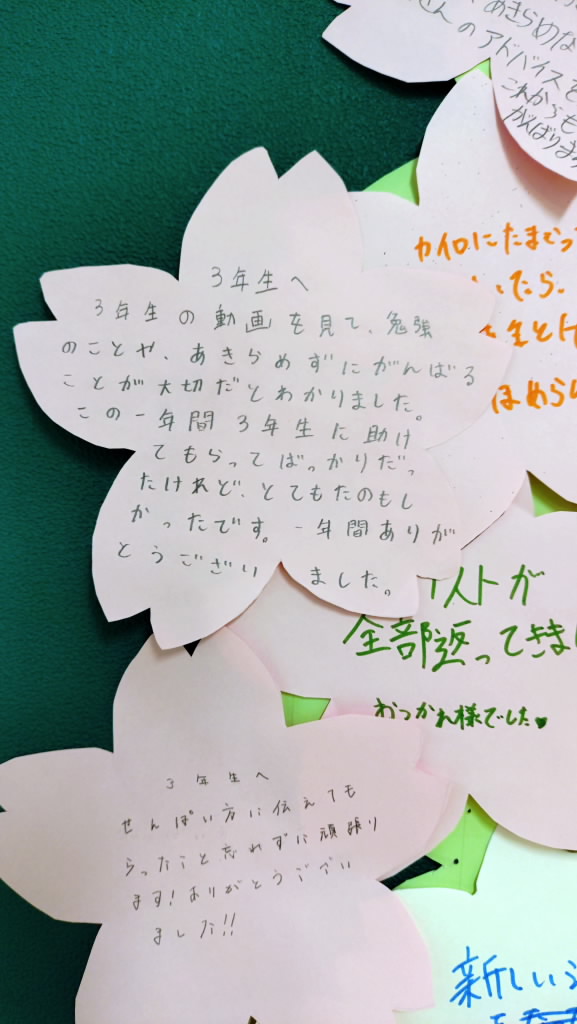 あきらめな
せんのアドバイスを
これからも
がんばりま
カイロにたまごっ
いたら、
生とト
ほめら
3年生へ
3年生の動画を見て、勉強
のことや、あきらめずにがんばる
ことが大切だとわかりました。
この一年間3年生に助け
てもらってばっかりだっ
たけれど、とてもたのもし
かったです。一年間ありが
とうございました。
ストが
全部返ってきまし
おつかれ様でした♥
3年生へ
せんぱい方に伝えても
らったこと忘れずに頑張り
ます!ありがとうござい
ました!!
新しい